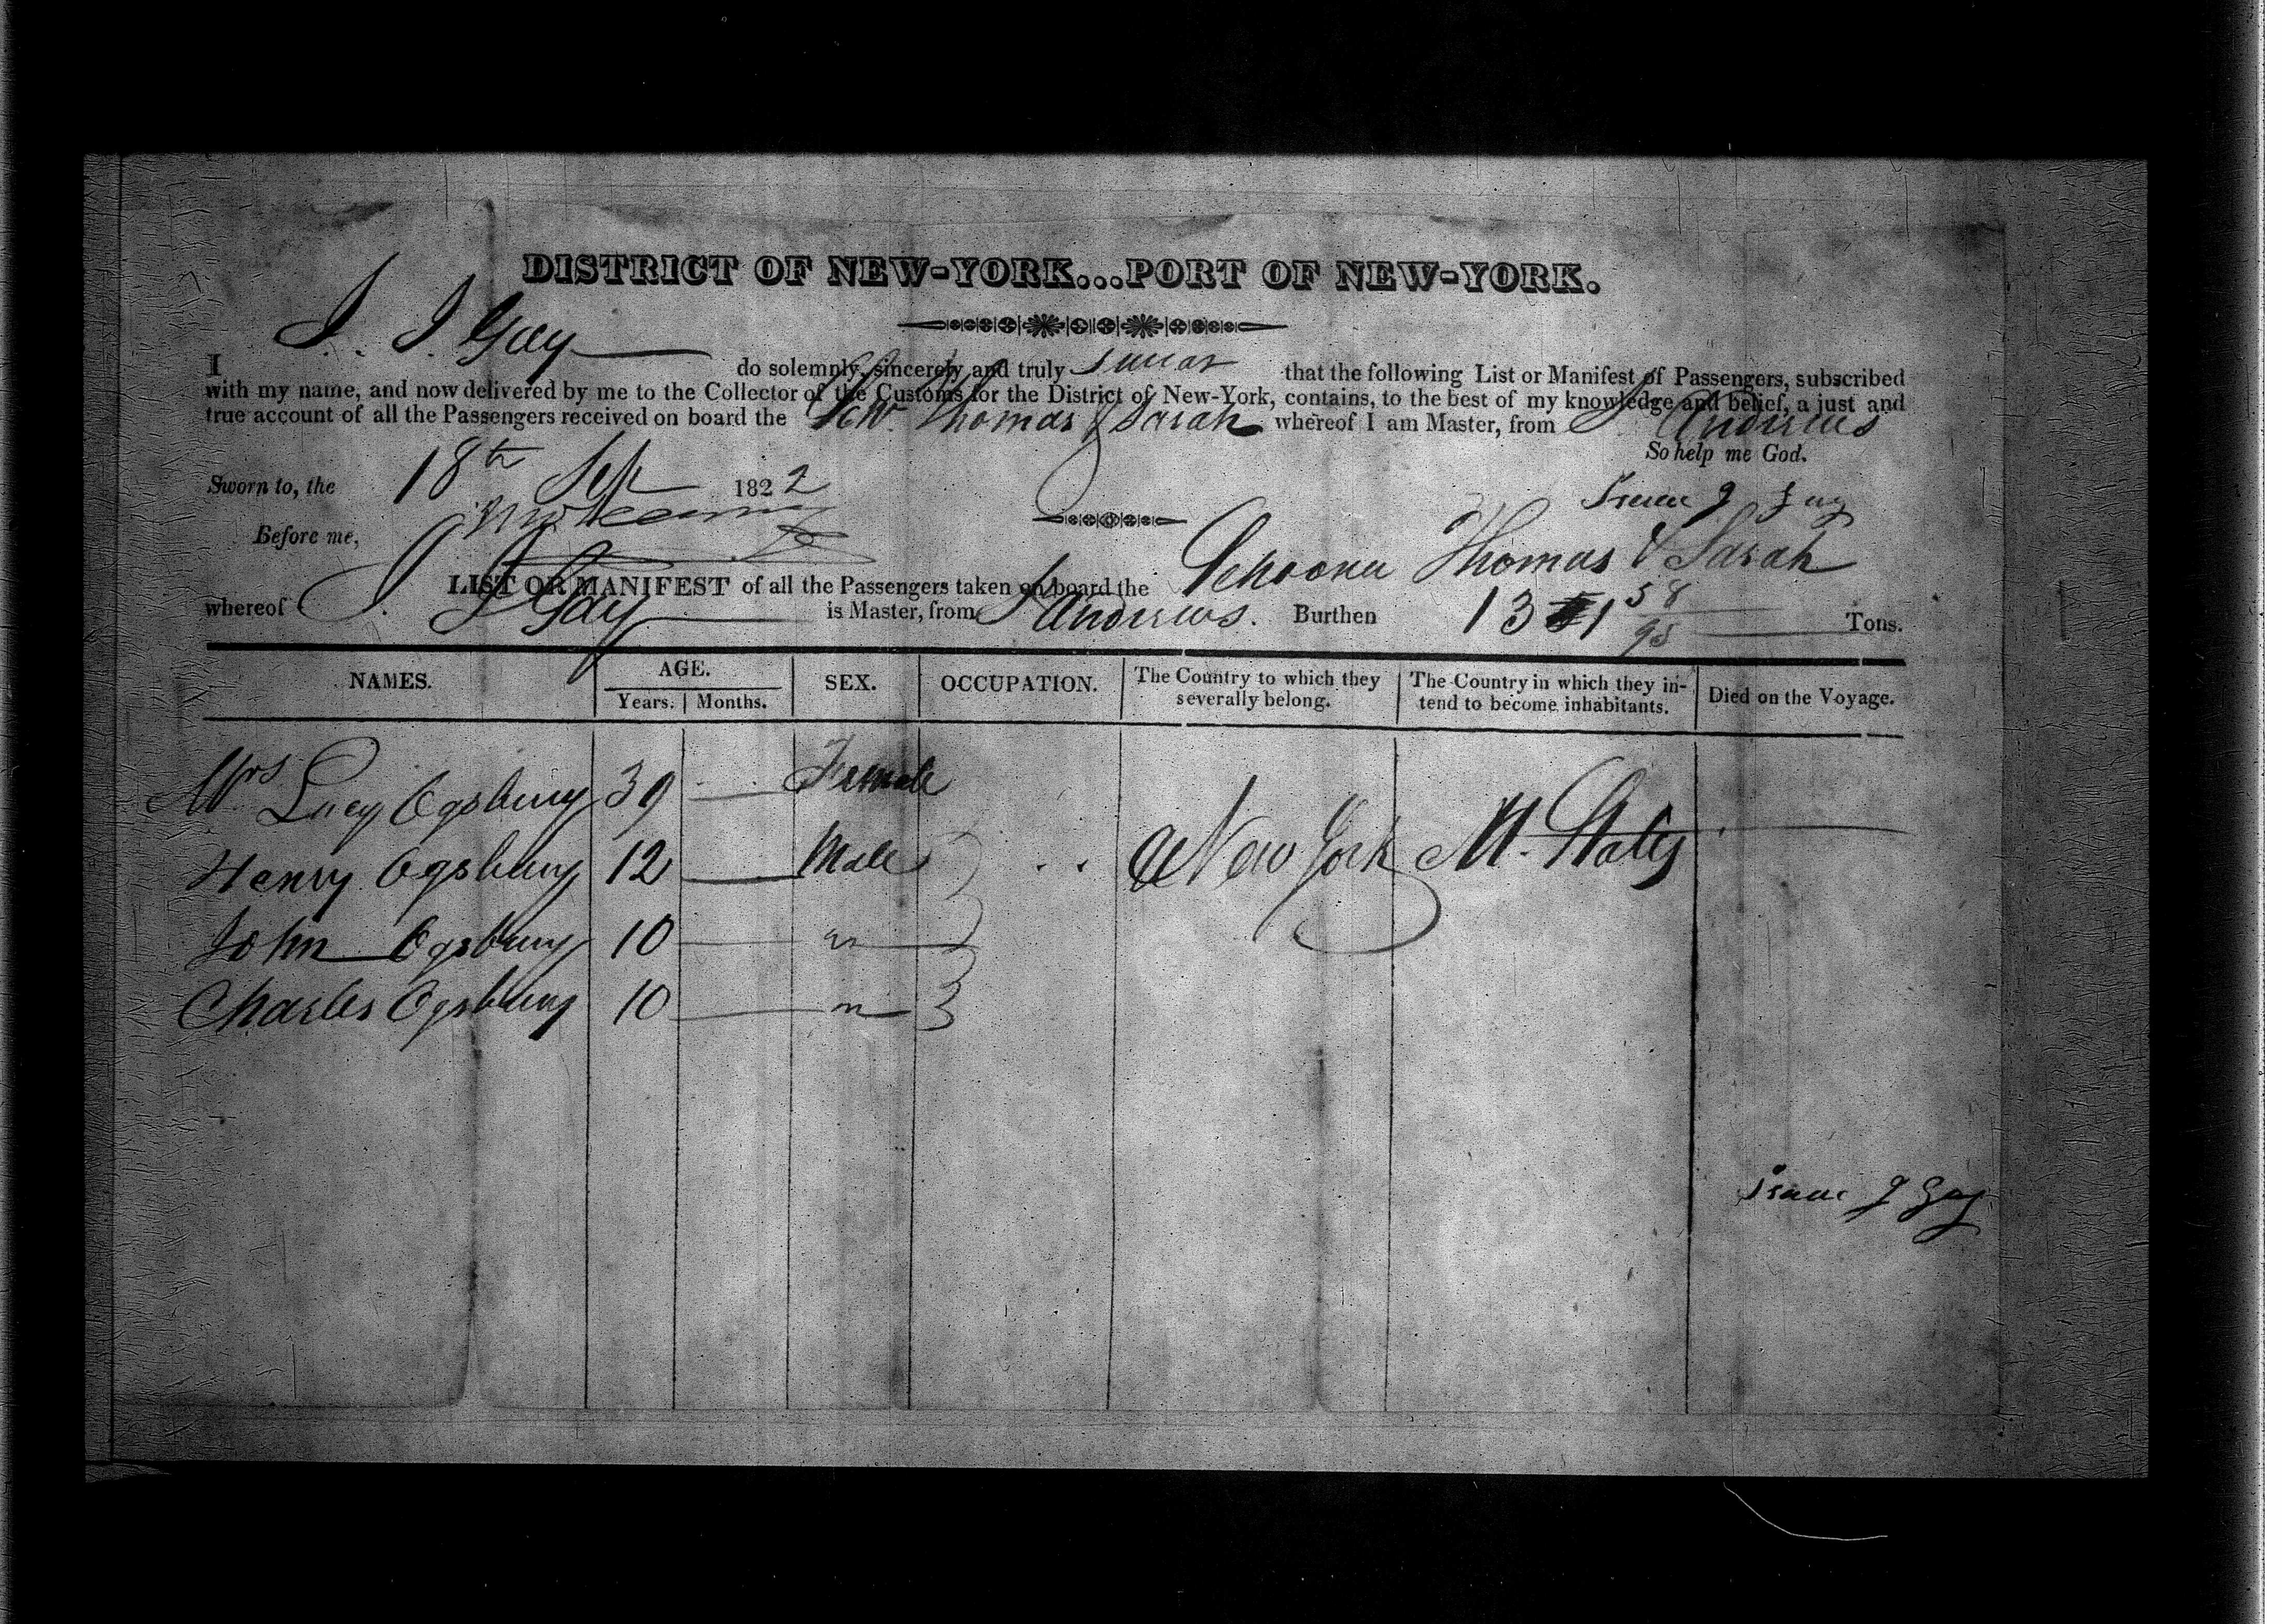 DISTRICT OF NEW-YORK...PORT OF NEW-YORK.
I I. I Gay do solemnly, sincerely and truly swear that the following List or Manifest of Passengers, subscribed
with my name, and now delivered by me to the Collector of the Customs for the District of New-York, contains, to the best of my knowledge and belief, a just and
true account of all the Passengers received on board the Schr. Thomas & Sarah whereof I am Master, from St Andrews
So help me God.
Sworn to, the 18th Sep 1822
Isaac J Gay
Before me,
LIST OR MANIFEST of all the Passengers taken on board the Schooner Thomas & Sarah
whereof I. I Gay is Master, from St Andrews. Burthen 131 58/95 Tons.
NAMES. AGE. SEX. OCCUPATION. The Country to which they severally belong. The Country in which they intend to become inhabitants. Died on the Voyage.
Years. Months.
Mrs Lucy Ogsbury 39 Female
Henry Ogsbury 12 Male New York U. States
John Ogsbury 10 "
Charles Ogsbury 10 "
Isaac J Gay